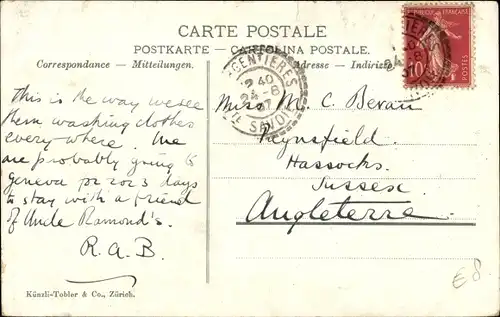 CARTE POSTALE
POSTKARTE - CARTOLINA POSTALE.
Correspondance - Mitteilungen.
Adresse - Indirizzo
This is the way we see
them washing clothes
everywhere. We
are probably going to
Geneva for 2 or 3 days
to stay with a friend
of Uncle Ramond's.
R.A.B.
Miss M. C. Bevan
Heynsfield
Hassocks
Sussex
Angleterre
ARGENTIERES
2 40
24 - 8
07
HTE SAVOIE
REPUBLIQUE FRANÇAISE
10
POSTES
Künzli-Tobler & Co., Zürich.
€8